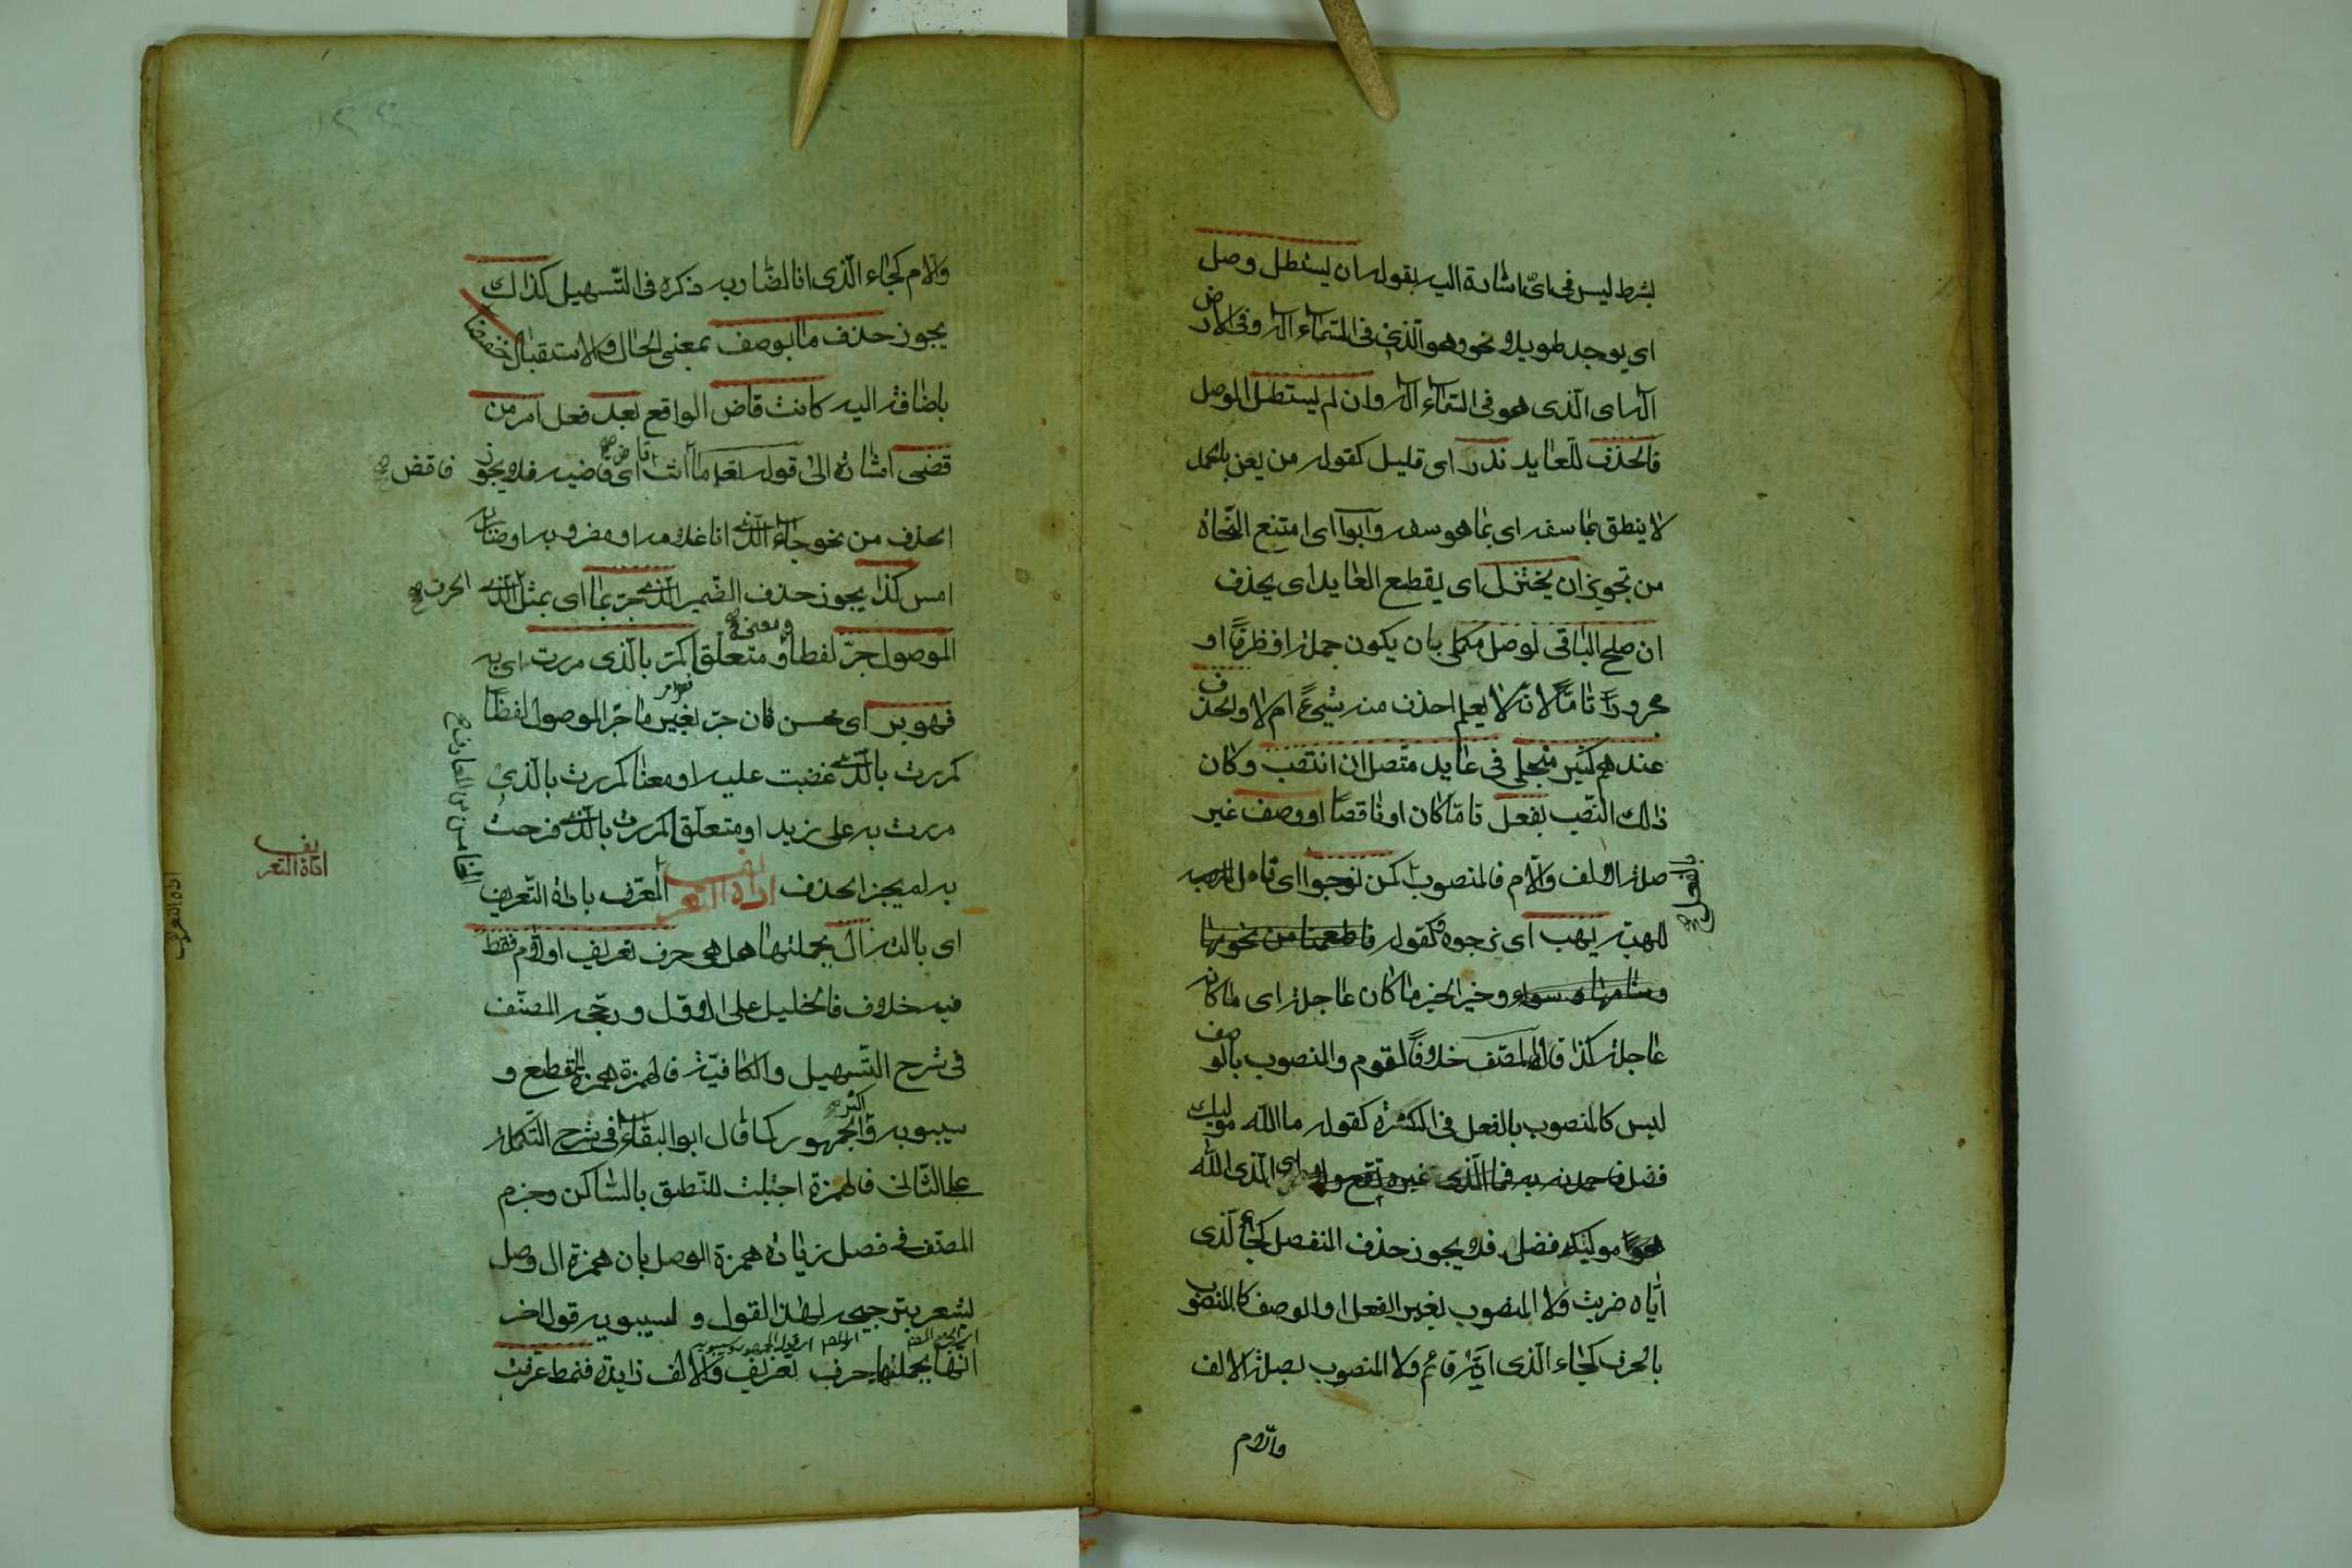 بشرط ليس في اىّ اشارة اليه بقوله ان يستطل وصل
اى يوجد طويلا نحو وهو الّذى فى السّماء اله وفى الارض
اله اى الّذى هو فى السّماء اله وان لم يستطل الوصل
فالحذف للعايد نذر اى قليل كقوله من يعن بالحمد
لا ينطق بما سفه اى بما هو سفه وابوا اى امتنع النّحاة
من تجويز ان يختزل اى يقطع العايد اى يحذف
ان صلح الباقى لوصل مكمل بان يكون جملة او ظرفًا او
مجرورًا تامّا لانّه لا يعلم احذف منه شيئ ام لا والحذف
عندهم كثير منجلى فى عايد متّصل ان انتصب وكان
ذلك النّصب بفعل تامّا كان او ناقصًا او وصف غير
صلة الالف والّلام فالمنصوب كمن نرجوا اى تامل
بالفعل
للهبة يهب اى نرجوه وكقوله فاطعمنا من
وخير الخير ما كان عاجله اى ما كانه
عاجله كذا قاله المصنّف خلافًا لقوم والمنصوب بالوصف
ليس كالمنصوب بالفعل فى الكثرة كقوله ما الله موليك
فضل فاحمدنه به فما الّذى غيره اى الّذى الله
موليكه فضل فلا يجوز حذف المنفصل كجاء الّذى
ايّاه ضربت ولا المنصوب بغير الفعل والوصف كالمنصوب
بالحرف كجاء الّذى انّه قائم ولا المنصوب بصلة الالف
والّلام
والّلام كجاء الّذى انا الضّاربه ذكره فى التّسهيل كذاك
يجوز حذف ما بوصف بمعنى الحال والاستقبال خفضا
باضافته اليه كانت قاض الواقع بعد فعل امر من
قضى اشارة الى قوله تعا فاقض ما انت قاض اى قاضيه فلا يجوز
الحذف من نحو جاء الّذى انا غلامه او مضروبه او ضاربه
امس كذا يجوز حذف الضّمير الّذى جرّ بما اى بمثل الحرف الّذى
الموصول جرّ لفظا ومعنى ومتعلّقا كمرّ بالّذى مررت اى به
فهو بر اى محسن فان جرّ بغير ما جرّ الموصول لفظًا
كمررت بالّذى غضبت عليه او معنًا كمررت بالّذى
مررت به على زيد او متعلّقا كمررت بالّذى فرحت
به لم يجز الحذف اداة التعريف المعرّف باداة التّعريف
الخامس من المعارف
اداة التعريف
اداة التعريف
اى بالته ال بجملتها هل هى حرف تعريف او الّلام فقط
فيه خلاف فالخليل على الاوّل ورجّحه المصنّف
فى شرح التّسهيل والكافيّة فالهمزة همزة القطع و
سيبويه واكثر الجمهور كما قال ابو البقاء فى شرح التّكملة
على الثّانى فالهمزة اجتلبت للنّطق بالسّاكن وجزم
المصنّف فى فصل زيادة همزة الوصل بان همزة ال وصل
يشعر بترجيحه لهذا القول ولسيبويه قول اخر
انّها بجملتها حرف تعريف والالف زايدة فنمط عرّفت